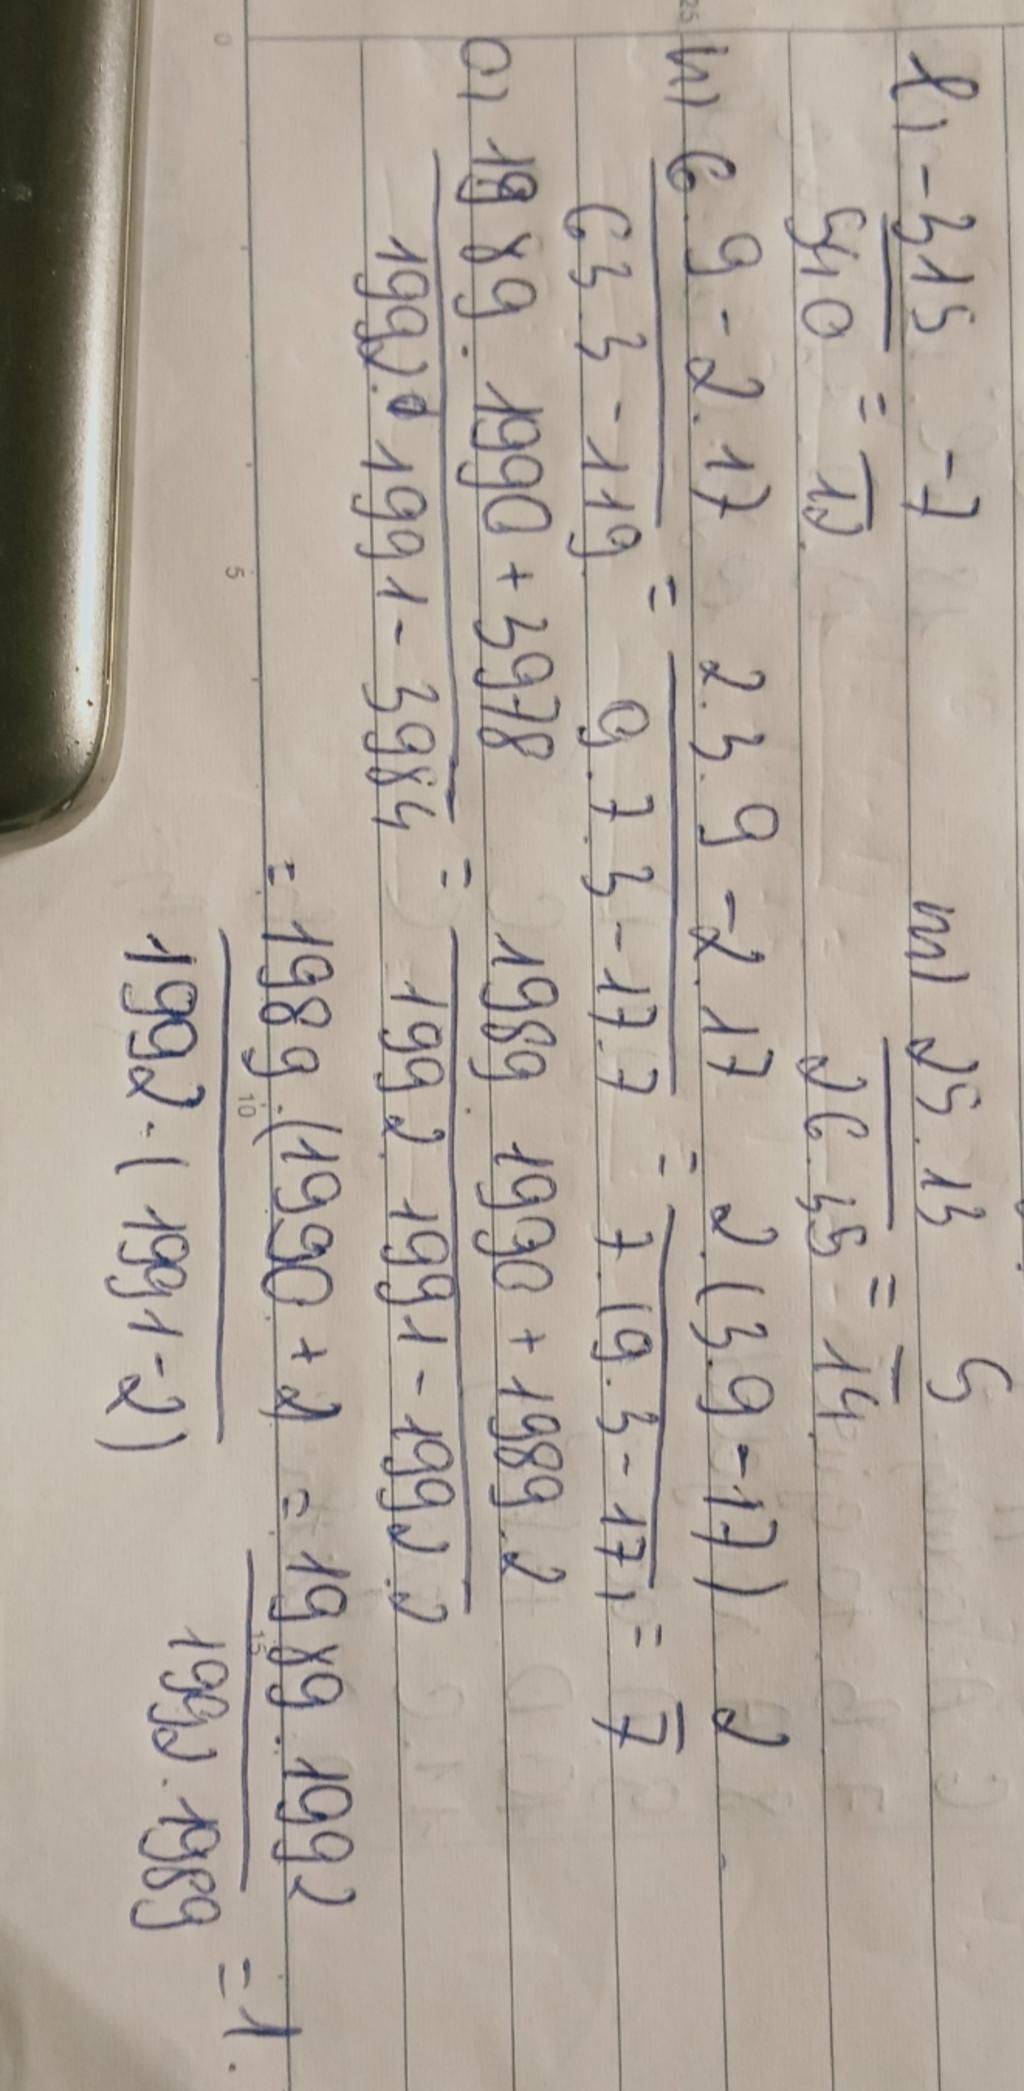 l) -315 -7 m) 25.13 5
540 = 12. 26.35 = 14
n) 6.9-2.17 2.3.9-2.17 2.(3.9-17) 2
63.3-119 = 9.7.3-17.7 = 7.(9.3-17) = 7
o) 1989.1990+3978 1989.1990+1989.2
1992.1991-3984 = 1992.1991-1992.2
= 1989.(1990+2) = 1989.1992
1992.(1991-2) 1992.1989 = 1.
0 5 10 15
25